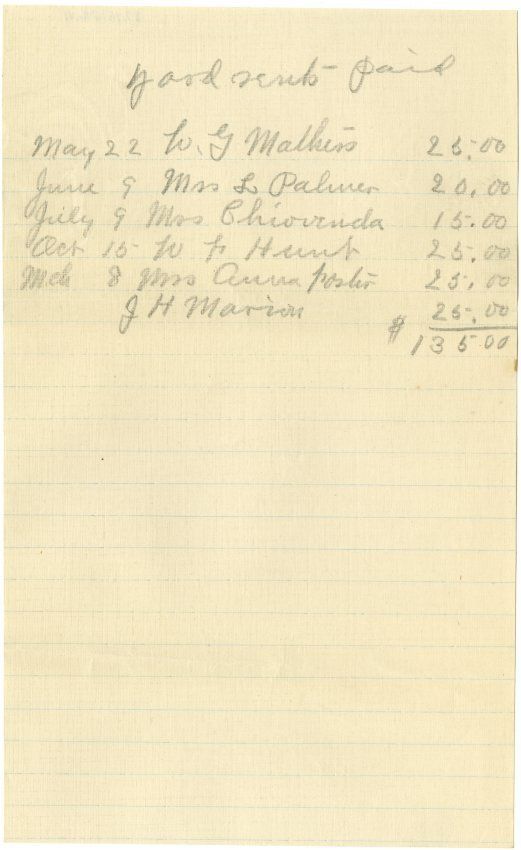 yard rents paid
May 22 W. G Mathers 25.00
June 9 Mrs L Palmer 20.00
July 9 Mrs Chiovenda 15.00
Oct 15 W F Hunt 25.00
Mch 8 Mrs Anna Foster 25.00
J H Marion 25.00
$ 135.00